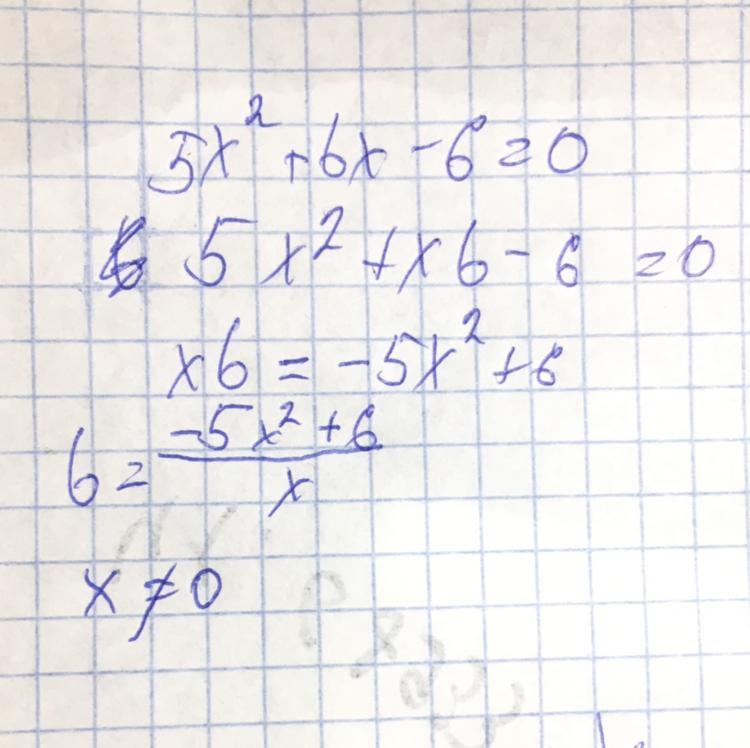 5x² + 6x - 6 = 0
5x² + x6 - 6 = 0
x6 = -5x² + 6
6 = (-5x² + 6)/x
x ≠ 0